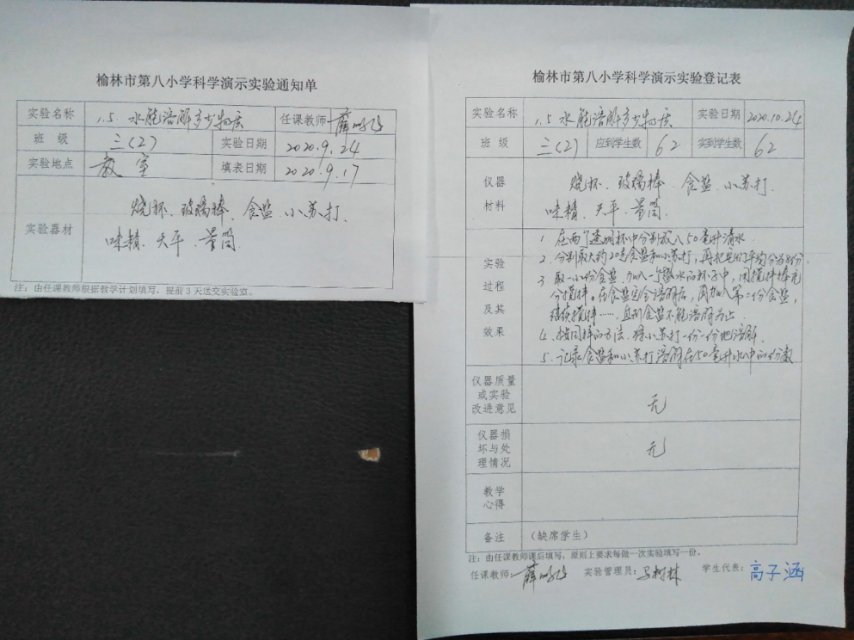 榆林市第八小学科学演示实验通知单
实验名称 1.5 水能溶解多少物质 任课教师 薛
班 级 三(2) 实验日期 2020.9.24
实验地点 教室 填表日期 2020.9.17
实验器材 烧杯、玻璃棒、食盐、小苏打、
味精、天平、量筒
注：由任课教师根据教学计划填写，提前3天送交实验室。
榆林市第八小学科学演示实验登记表
实验名称 1.5 水能溶解多少物质 实验日期 2020.10.24
班 级 三(2) 应到学生数 62 实到学生数 62
仪器材料 烧杯、玻璃棒、食盐、小苏打、
味精、天平、量筒
实验过程及其效果
1. 在两个透明杯中分别放入50毫升清水.
2. 分别取大约20克食盐和小苏打，再把它们平均分为8份.
3. 取一小份食盐，加入一个盛水的杯子中，用搅拌棒充
分搅拌，在食盐完全溶解后，再加入第二份食盐，
继续搅拌……，直到食盐不能溶解为止.
4. 用同样的方法，将小苏打一份一份地溶解.
5. 记录食盐和小苏打溶解在50毫升水中的份数
仪器质量或实验改进意见 无
仪器损坏与处理情况 无
教学心得
备注 （缺席学生）
注：由任课教师课后填写，原则上要求每做一次实验填写一份。
任课教师： 薛 实验管理员： 柯林 学生代表：高子涵